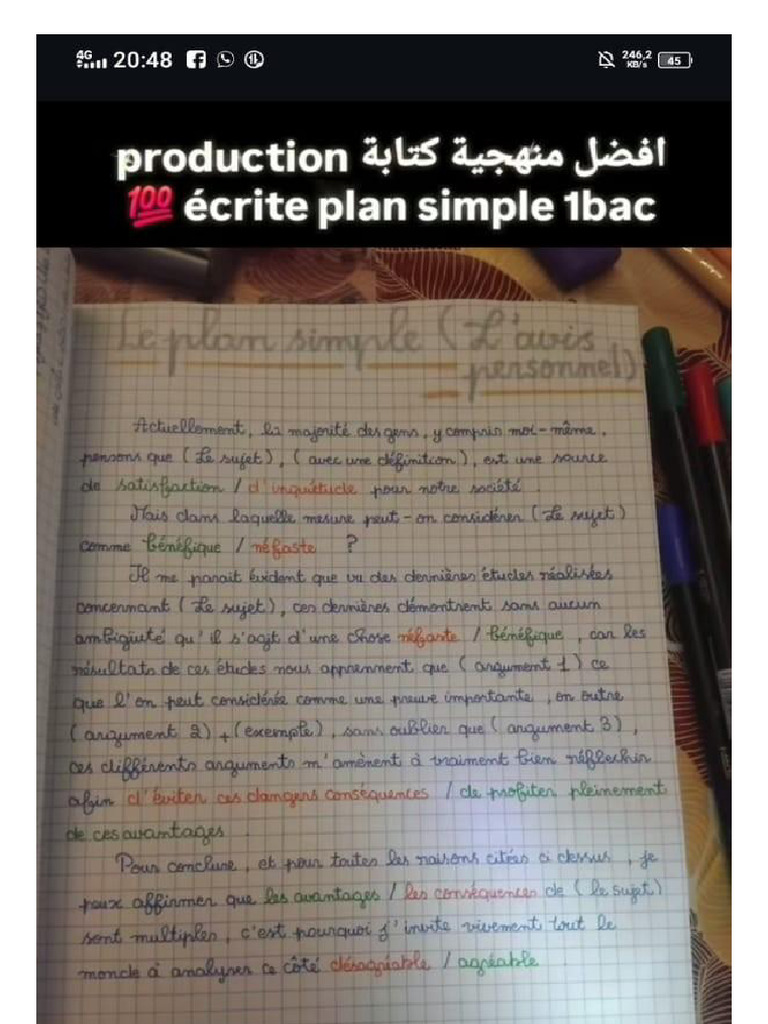 4G 20:48 246,2 KB/s 45
افضل منهجية كتابة production
écrite plan simple 1bac 💯
Le plan simple ( L'avis
personnel)
Actuellement, la majorité des gens, y compris moi-même,
pensons que ( Le sujet ), ( avec une définition ), est une source
de satisfaction / d'inquiétude pour notre société.
Mais dans laquelle mesure peut-on considérer ( Le sujet )
comme bénéfique / néfaste ?
Il me parait évident que vu des dernières études réalistes
concernant ( Le sujet ), ces dernières démontrent sans aucun
ambiguïté qu'il s'agit d'une chose néfaste / bénéfique, car les
résultats de ces études nous apprennent que ( argument 1 ) ce
que l'on peut considérée comme une preuve importante, en outre
( argument 2 ) + ( exemple ), sans oublier que ( argument 3 ),
ces différents arguments m'amènent à vraiment bien réflechir
afin d'éviter ces dangers conséquences / de profiter pleinement
de ces avantages.
Pour conclure, et pour toutes les raisons citées ci dessus, je
peux affirmer que les avantages / les conséquences de ( le sujet )
sont multiples, c'est pourquoi j'invite vivement tout le
monde à analyser ce côté désagréable / agréable